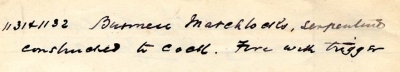 1131 & 1132 Burmese Matchlocks, serpentine
constructed to cock. Fire with trigger